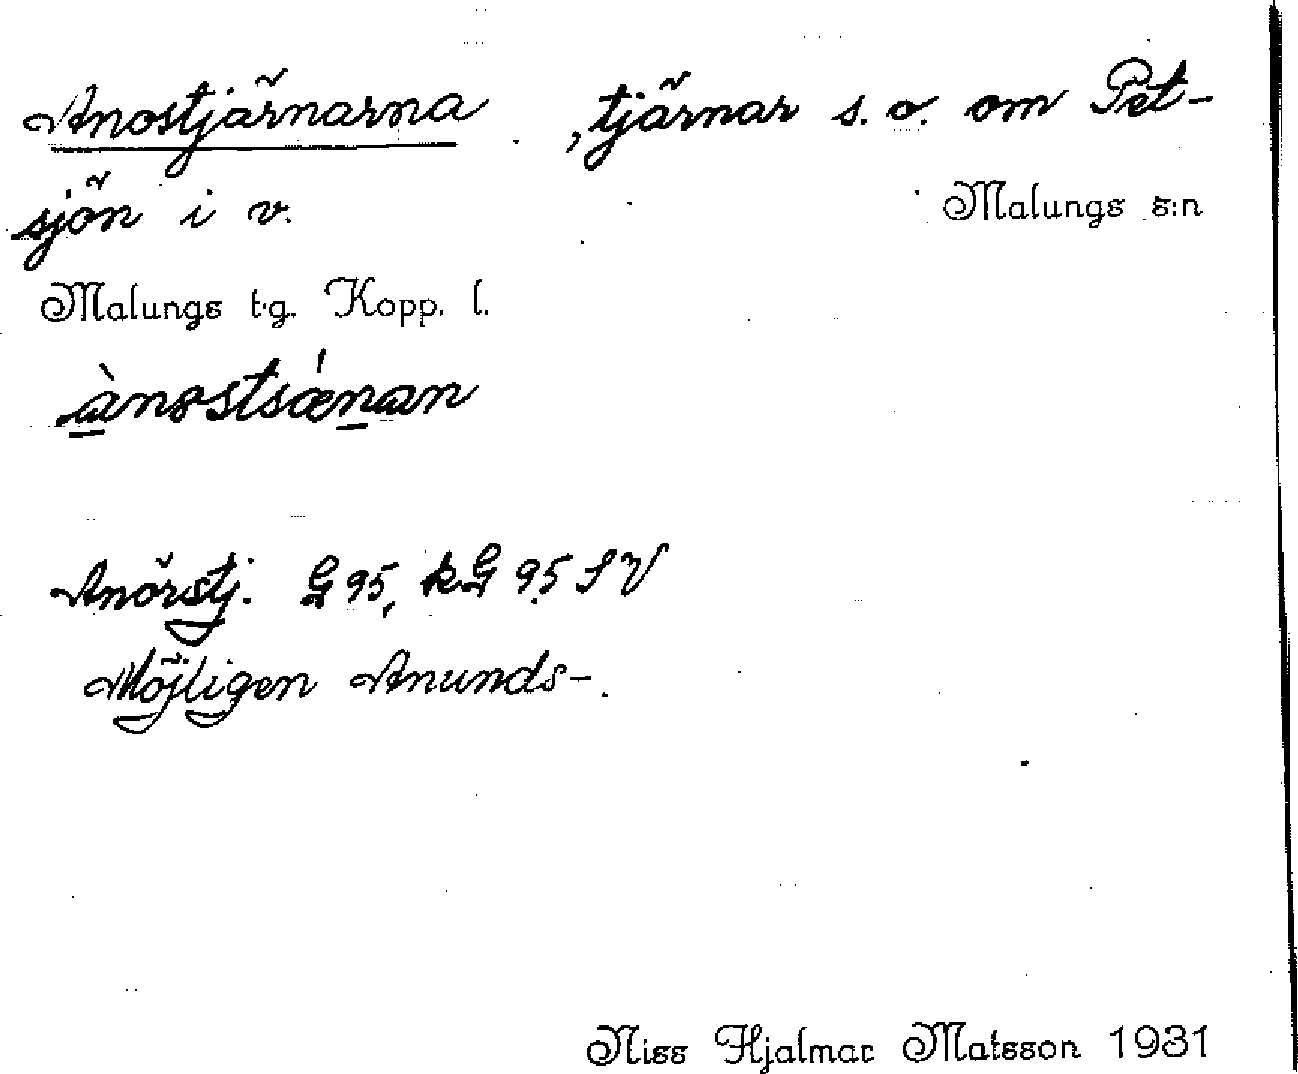 Anostjärnarna, tjärnar s.o. om Pet-
sjön i v.
Malungs s:n
Malungs t.g. Kopp. l.
ànostsǽnan
Anörstj. G 95, kG 95 SV
Möjligen Anunds-.
Niss Hjalmar Matsson 1931